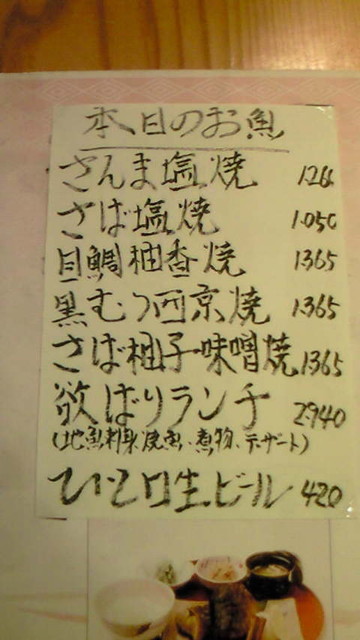 本日のお魚
さんま塩焼 1266
さば塩焼 1.050
目鯛柚香焼 1365
黒むつ西京焼 1365
さば柚子味噌焼 1365
欲ばりランチ 2940
(地魚刺身.焼魚.煮物.デザート)
ひと口生ビール 420